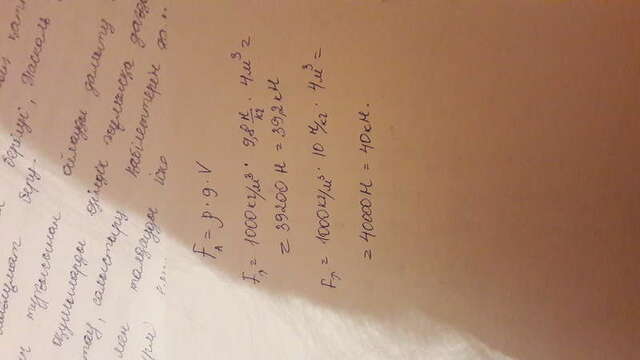 берілуі, Паскаль
беру.
тұрғысынан ойлауды дамыту
оқушыларды өзіндік жұмысқа
салыстыру қабілеттерін
мен талдауды іске
F_А = ρ · g · V
F_А = 1000 кг/м³ · 9,8 Н/кг · 4 м³ =
= 39200 Н = 39,2 кН
F_А = 1000 кг/м³ · 10 Н/кг · 4 м³ =
= 40000 Н = 40 кН.